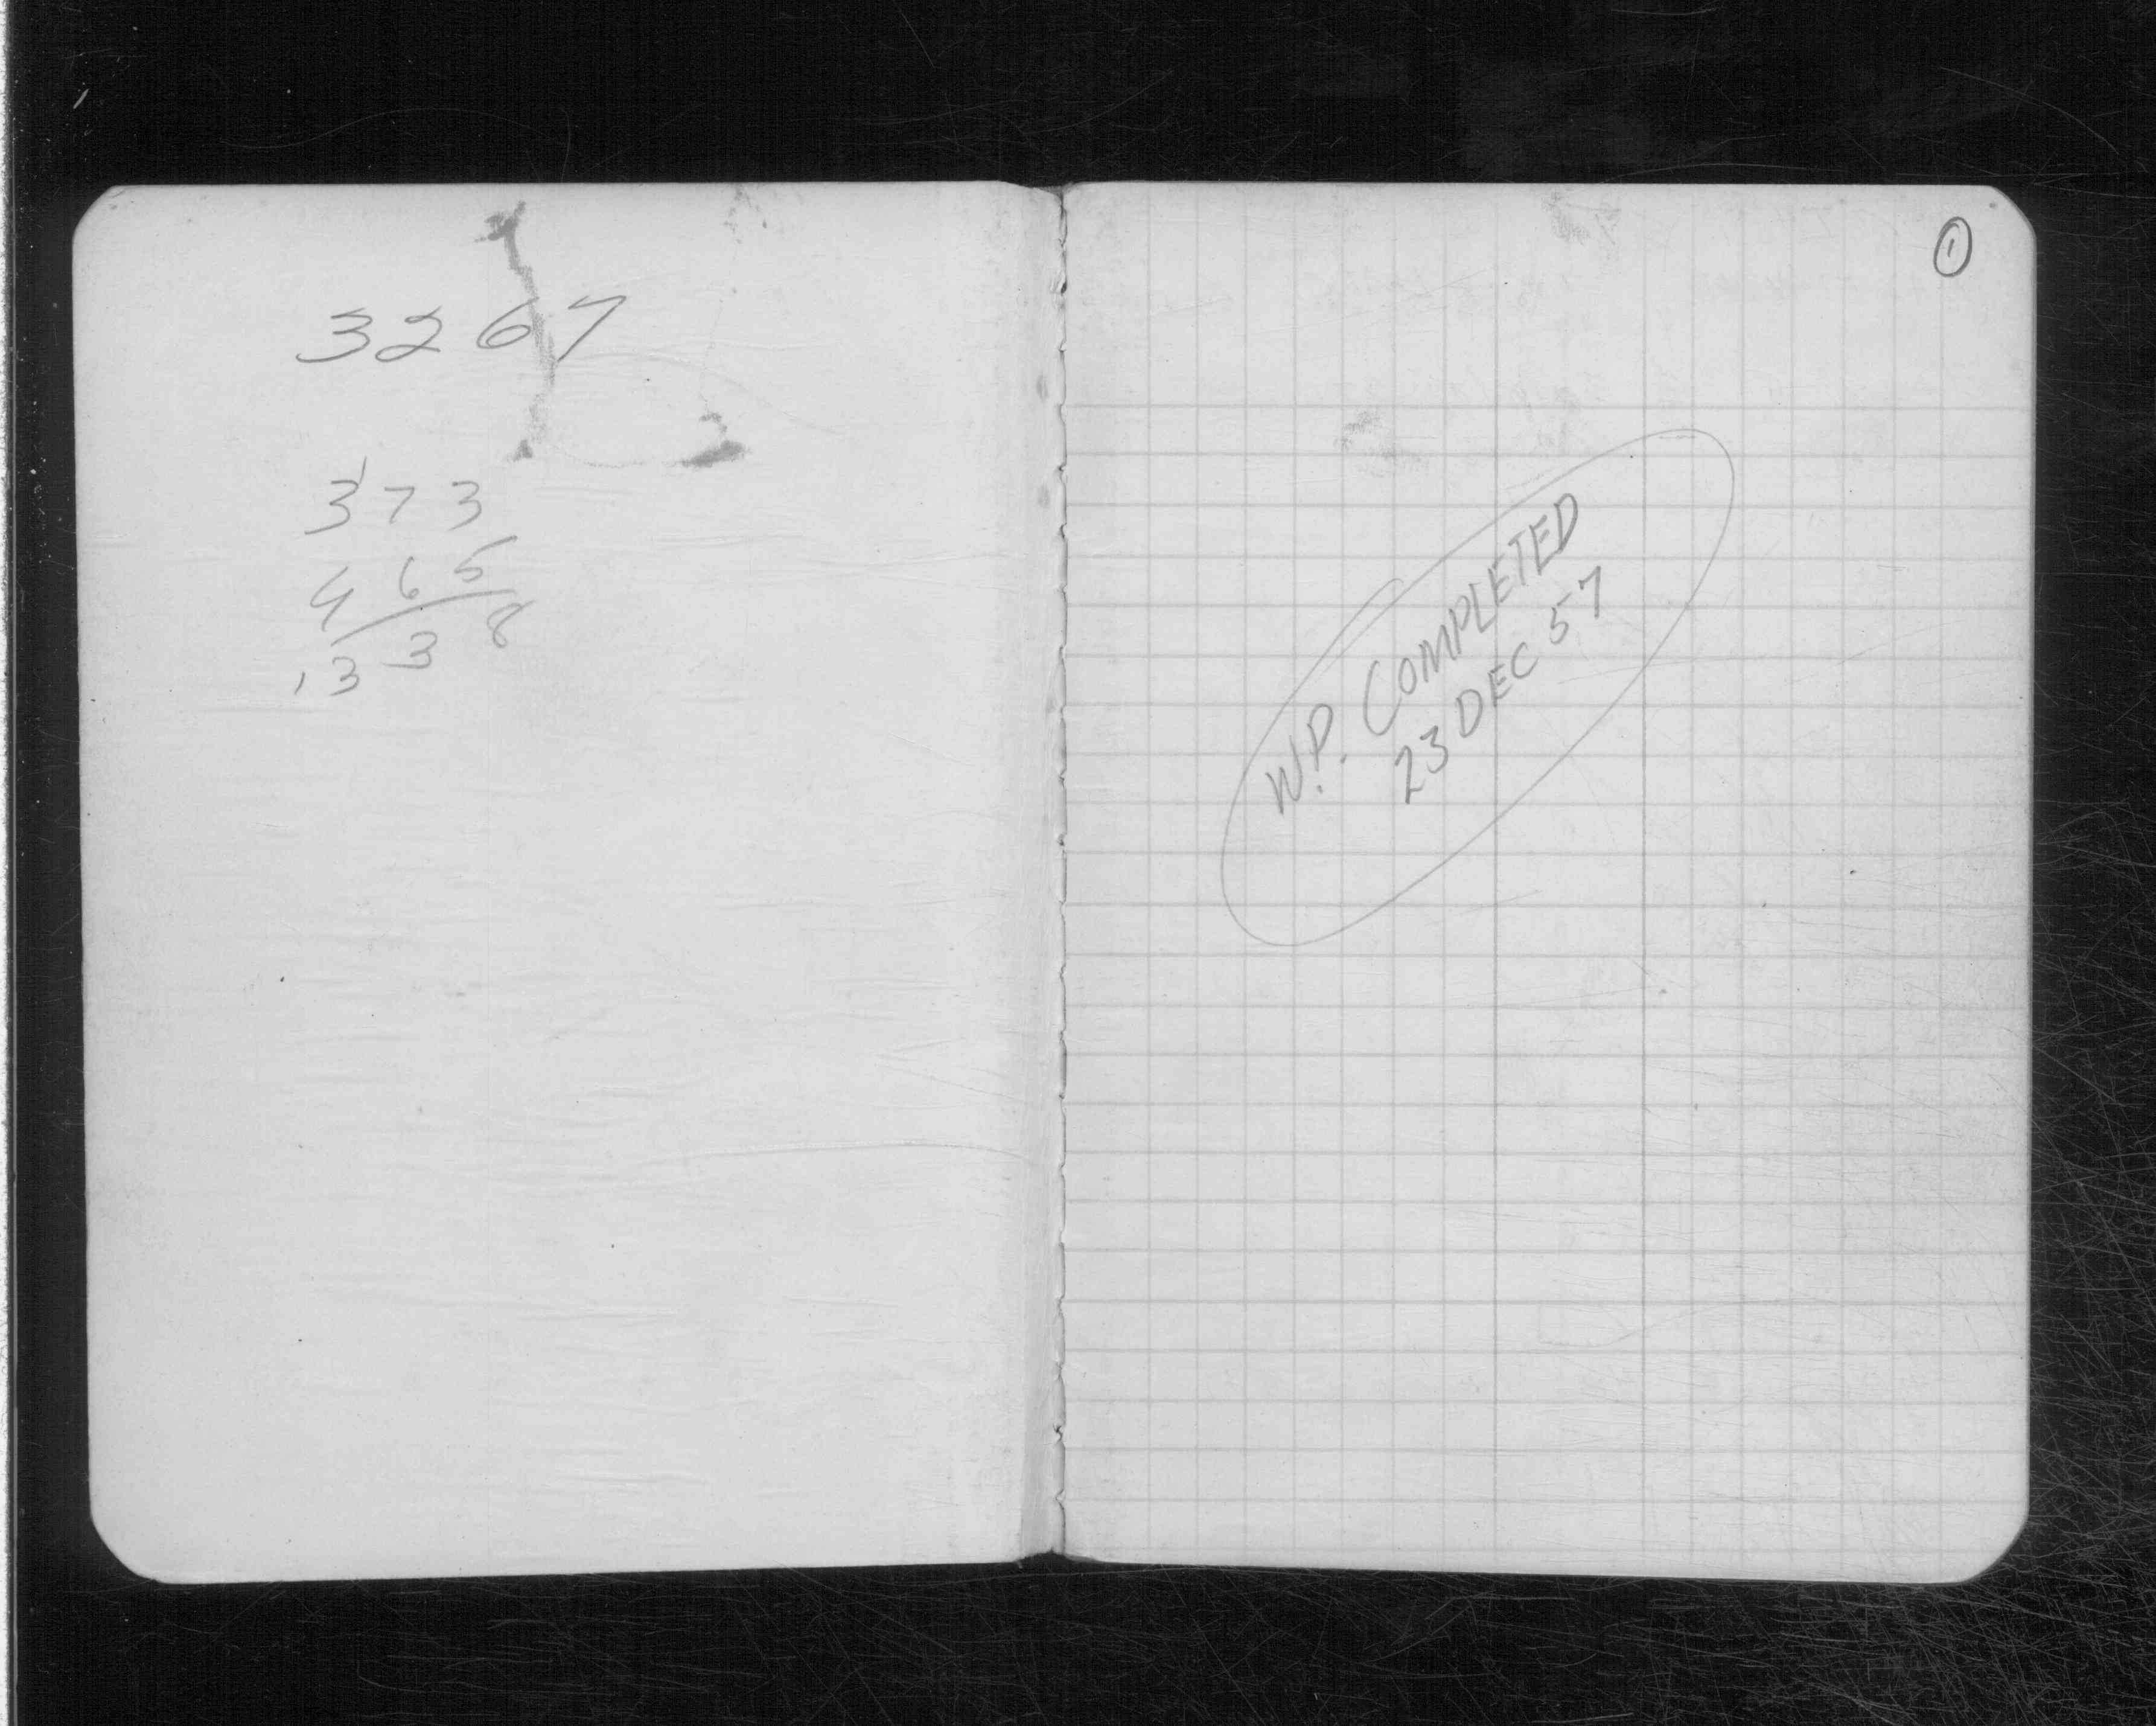 3267
1
373
465
1338
1
W.P. COMPLETED
23 DEC 57